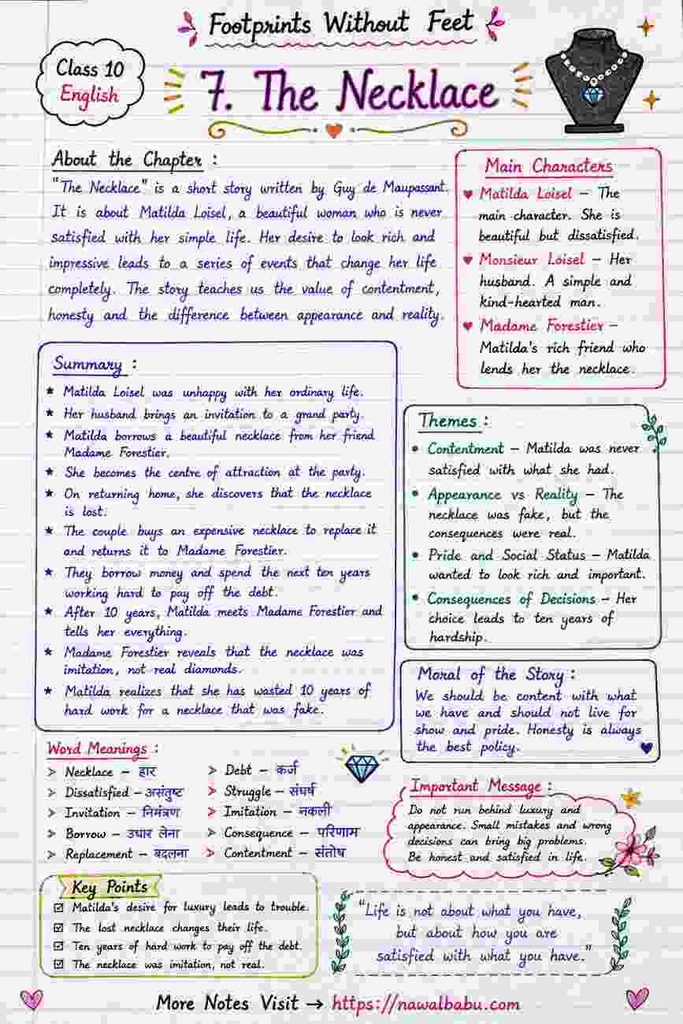 Footprints Without Feet
Class 10
English
7. The Necklace
About the Chapter :
"The Necklace" is a short story written by Guy de Maupassant.
It is about Matilda Loisel, a beautiful woman who is never
satisfied with her simple life. Her desire to look rich and
impressive leads to a series of events that change her life
completely. The story teaches us the value of contentment,
honesty and the difference between appearance and reality.
Main Characters
♥ Matilda Loisel – The
main character. She is
beautiful but dissatisfied.
♥ Monsieur Loisel – Her
husband. A simple and
kind-hearted man.
♥ Madame Forestier –
Matilda's rich friend who
lends her the necklace.
Summary :
★ Matilda Loisel was unhappy with her ordinary life.
★ Her husband brings an invitation to a grand party.
★ Matilda borrows a beautiful necklace from her friend
Madame Forestier.
★ She becomes the centre of attraction at the party.
★ On returning home, she discovers that the necklace
is lost.
★ The couple buys an expensive necklace to replace it
and returns it to Madame Forestier.
★ They borrow money and spend the next ten years
working hard to pay off the debt.
★ After 10 years, Matilda meets Madame Forestier and
tells her everything.
★ Madame Forestier reveals that the necklace was
imitation, not real diamonds.
★ Matilda realizes that she has wasted 10 years of
hard work for a necklace that was fake.
Themes :
• Contentment – Matilda was never
satisfied with what she had.
• Appearance vs Reality – The
necklace was fake, but the
consequences were real.
• Pride and Social Status – Matilda
wanted to look rich and important.
• Consequences of Decisions – Her
choice leads to ten years of
hardship.
Moral of the Story :
We should be content with what
we have and should not live for
show and pride. Honesty is always
the best policy.
Word Meanings :
➤ Necklace – हार
➤ Dissatisfied – असंतुष्ट
➤ Invitation – निमंत्रण
➤ Borrow – उधार लेना
➤ Replacement – बदलना
➤ Debt – कर्ज
➤ Struggle – संघर्ष
➤ Imitation – नकली
➤ Consequence – परिणाम
➤ Contentment – संतोष
Important Message :
Do not run behind luxury and
appearance. Small mistakes and wrong
decisions can bring big problems.
Be honest and satisfied in life.
Key Points
☑ Matilda's desire for luxury leads to trouble.
☑ The lost necklace changes their life.
☑ Ten years of hard work to pay off the debt.
☑ The necklace was imitation, not real.
"Life is not about what you have,
but about how you are
satisfied with what you have."
More Notes Visit → https://nawalbabu.com